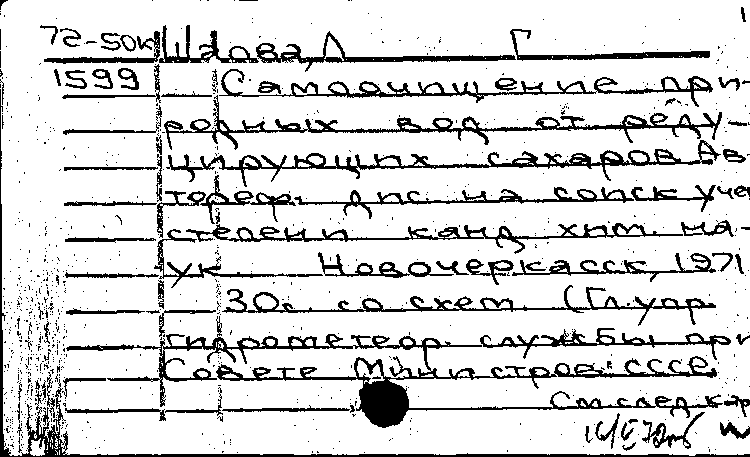 72-50к Шахова, Л Г
1599 Самоочищение при-
родных вод от реду-
цирующих сахаров Ав-
тореф. дис. на соиск учен
степени канд хим. на-
ук Новочеркасск, 1971
30с. со схем. (Гл. упр.
гидрометеор. службы при
Совете Министров СССР.
См след. кар